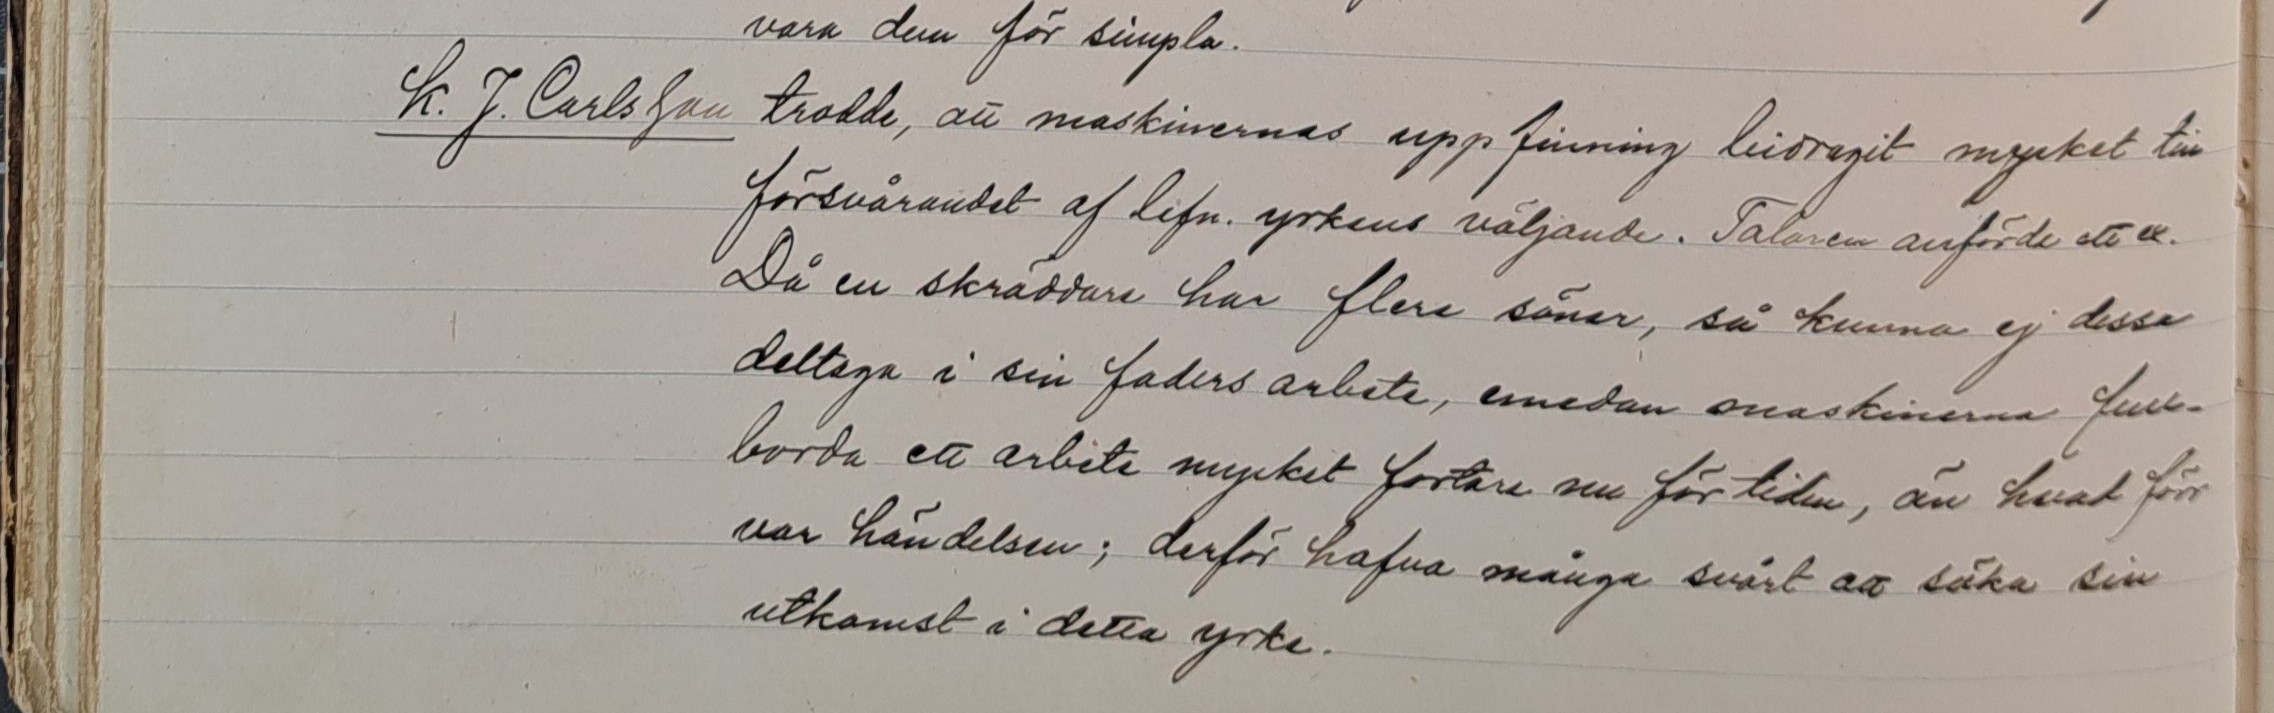 vara dem för simpla.
K. J. Carlsson trodde, att maskinernas uppfinning bidragit mycket till
försvårandet af lefn. yrkens väljande. Talaren anförde ett ex.
Då en skräddare har flere söner, så kunna ej dessa
deltaga i sin faders arbete, emedan maskinerna full-
borda ett arbete mycket fortare nu för tiden, än hvad förr
var händelsen; derför hafva många svårt att söka sin
utkomst i detta yrke.